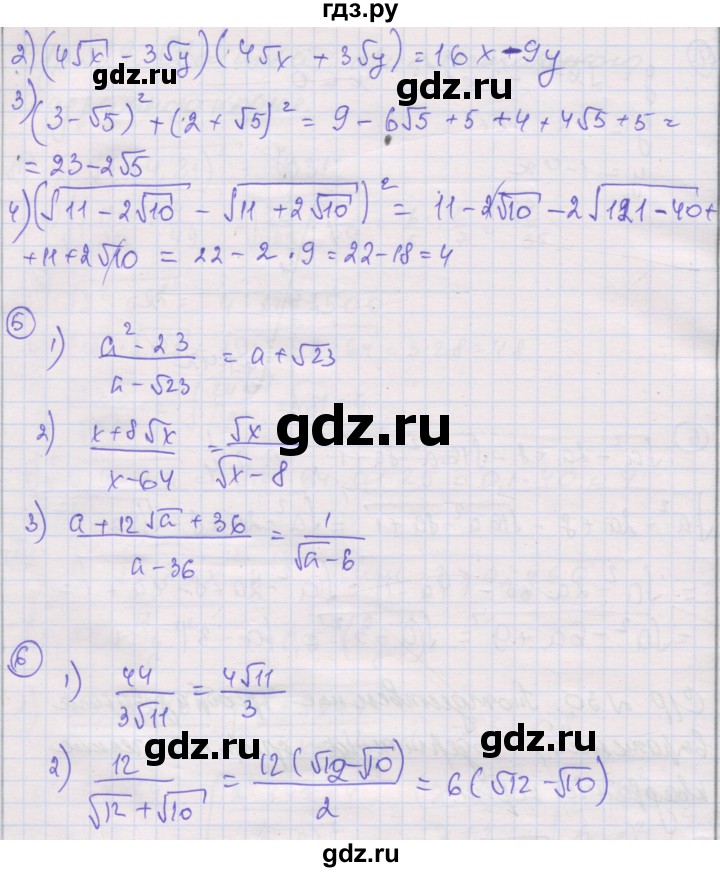 гдз.ру
2) (4√x - 3√y)(4√x + 3√y) = 16x - 9y
gdz.ru
gdz.ru
3) (3-√5)² + (2 + √5)² = 9 - 6√5 + 5 + 4 + 4√5 + 5 =
= 23 - 2√5
4) (√(11 - 2√10) - √(11 + 2√10))² = 11 - 2√10 - 2√(121 - 40) +
+ 11 + 2√10 = 22 - 2 · 9 = 22 - 18 = 4
gdz.ru
gdz.ru
5
1) (a² - 23)/(a - √23) = a + √23
2) (x + 8√x)/(x - 64) = √x/(√x - 8)
gdz.ru
gdz.ru
3) (a + 12√a + 36)/(a - 36) = 1/(√a - 6)
6
1) 44/(3√11) = 4√11/3
gdz.ru
gdz.ru
2) 12/(√12 + √10) = 12(√12 - √10)/2 = 6(√12 - √10)
gdz.ru